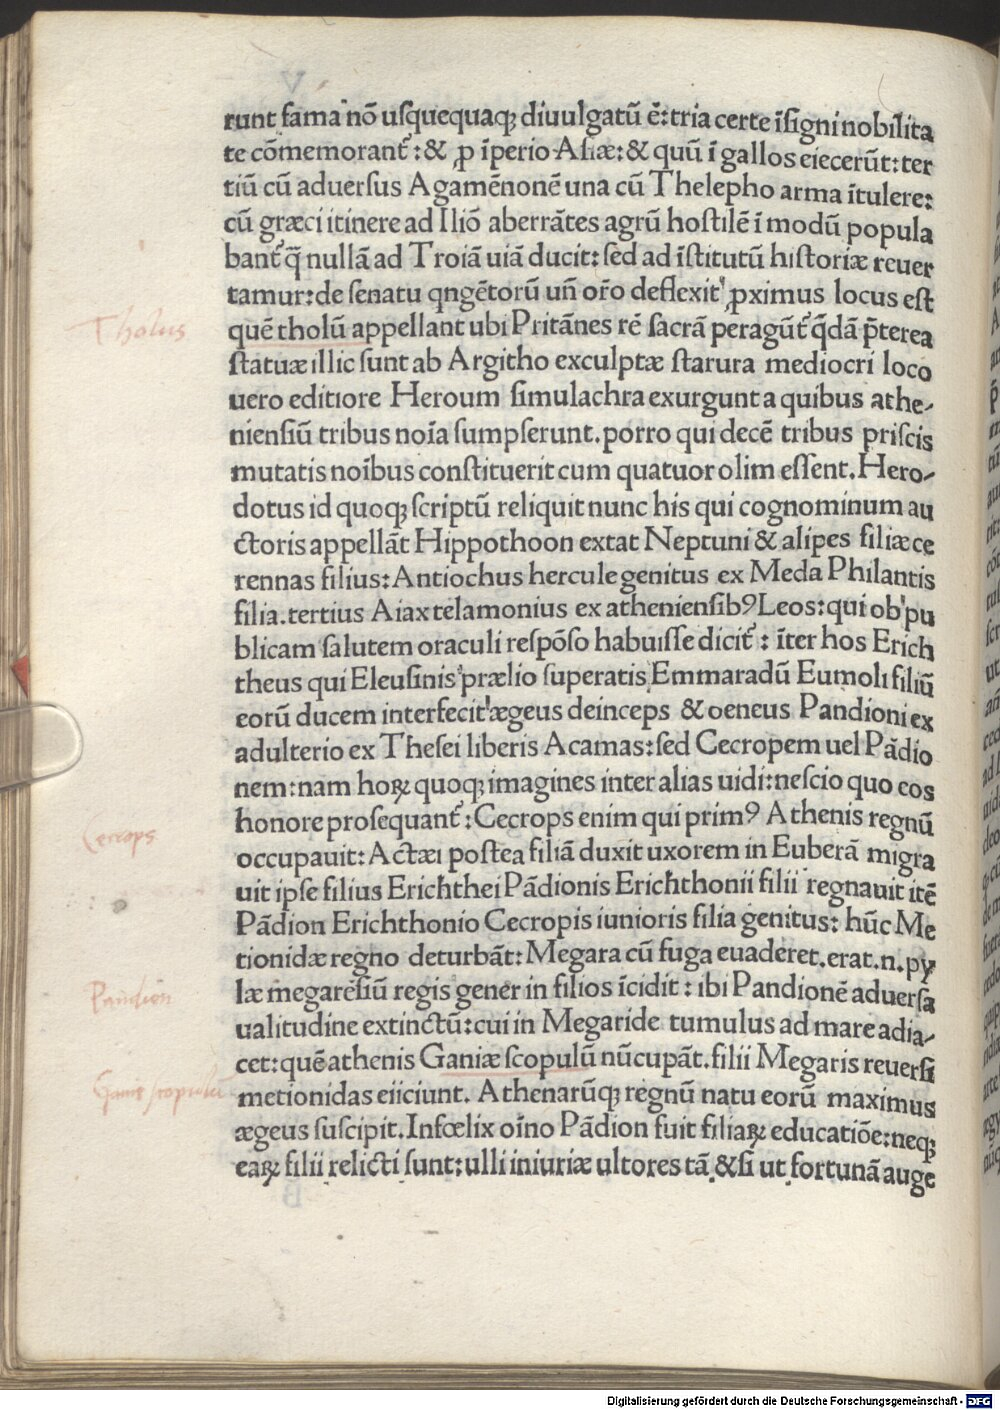 runt fama nō uſquequaqꝫ diuulgatū ē: tria certe īſigni nobilita
te cōmemorant᷑: & ꝓ īperio Aſiæ: & quū ī gallos eiecerūt: ter
tiū cū aduerſus Agamēnonē una cū Thelepho arma ītulere:
cū græci itinere ad Iliō aberrātes agrū hoſtilē ī modū popula
bant᷑ q̄ nullā ad Troiā uiā ducit: ſed ad īſtitutū hiſtoriæ reuer
tamur: de ſenatu qngētorū uñ or̃o deflexit' ꝓximus locus eſt
Tholus
quē tholū appellant ubi Pritānes rē ſacrā peragūt᷑ q̄dā p̄terea
ſtatuæ illic ſunt ab Argitho exculptæ ſtarura mediocri loco
uero editiore Heroum ſimulachra exurgunt a quibus athe-
nienſiū tribus noīa ſumpſerunt. porro qui decē tribus priſcis
mutatis noībus conſtituerit cum quatuor olim eſſent. Hero-
dotus id quoqꝫ ſcriptū reliquit nunc his qui cognominum au
ctoris appellāt Hippothoon extat Neptuni & alipes filiæ ce
rennas filius: Antiochus hercule genitus ex Meda Philantis
filia. tertius Aiax telamonius ex athenienſibꝰ Leos: qui ob pu
blicam ſalutem oraculi reſpōſo habuiſſe dicit᷑: īter hos Erich
theus qui Eleuſinis prælio ſuperatis Emmaradū Eumoli filiū
eorū ducem interfecit' ægeus deinceps & oeneus Pandioni ex
adulterio ex Theſei liberis Acamas: ſed Cecropem uel Pādio
nem: nam hoꝝ quoqꝫ imagines inter alias uidi: neſcio quo eos
Cecrops
honore proſequant᷑: Cecrops enim qui primꝰ Athenis regnū
occupauit: Actæi poſtea filiā duxit uxorem in Euberā migra
uit ipſe filius Erichthei Pādionis Erichthonii filii regnauit itē
Pādion Erichthonio Cecropis iunioris filia genitus: hūc Me
tionidæ regno deturbāt: Megara cū fuga euaderet. erat. n. py
Pandion
læ megarēſiū regis gener in filios īcidit: ibi Pandionē aduerſa
ualitudine extinctū: cui in Megaride tumulus ad mare adia-
cet: quē athenis Ganiæ ſcopulū nūcupāt. filii Megaris reuerſi
Ganie ſcopulū
metionidas eiiciunt. Athenarūqꝫ regnū natu eorū maximus
ægeus ſuſcipit. Infœlix oīno Pādion fuit filiaꝝ educatiōe: neqꝫ
eaꝝ filii relicti ſunt: ulli iniuriæ ultores tā. & ſi ut fortunā auge
Digitalisierung gefördert durch die Deutsche Forschungsgemeinschaft - DFG